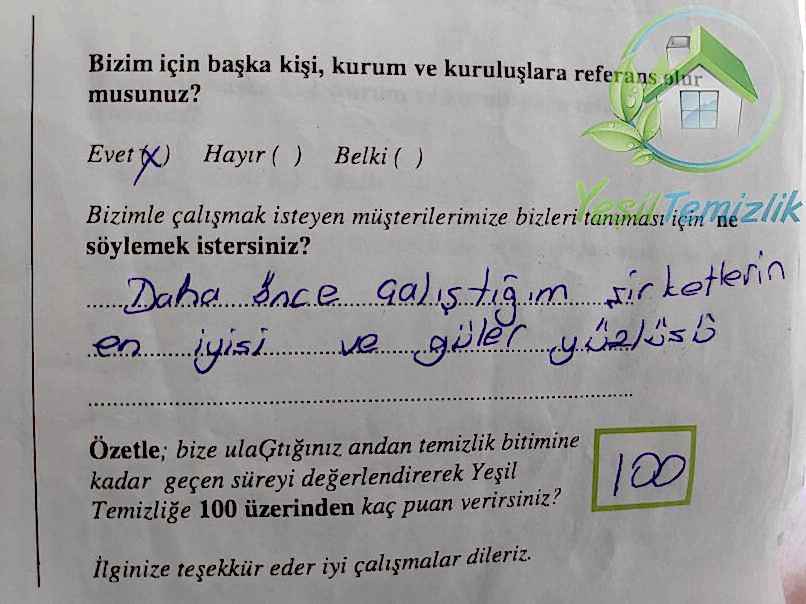 Bizim için başka kişi, kurum ve kuruluşlara referans olur
musunuz?
Evet (X) Hayır ( ) Belki ( )
Yeşil Temizlik
Bizimle çalışmak isteyen müşterilerimize bizleri tanıması için ne
söylemek istersiniz?
Daha önce çalıştığım şirketlerin
en iyisi ve güler yüzlüsü
Özetle; bize ulaGtığınız andan temizlik bitimine
kadar geçen süreyi değerlendirerek Yeşil
Temizliğe 100 üzerinden kaç puan verirsiniz?
100
İlginize teşekkür eder iyi çalışmalar dileriz.